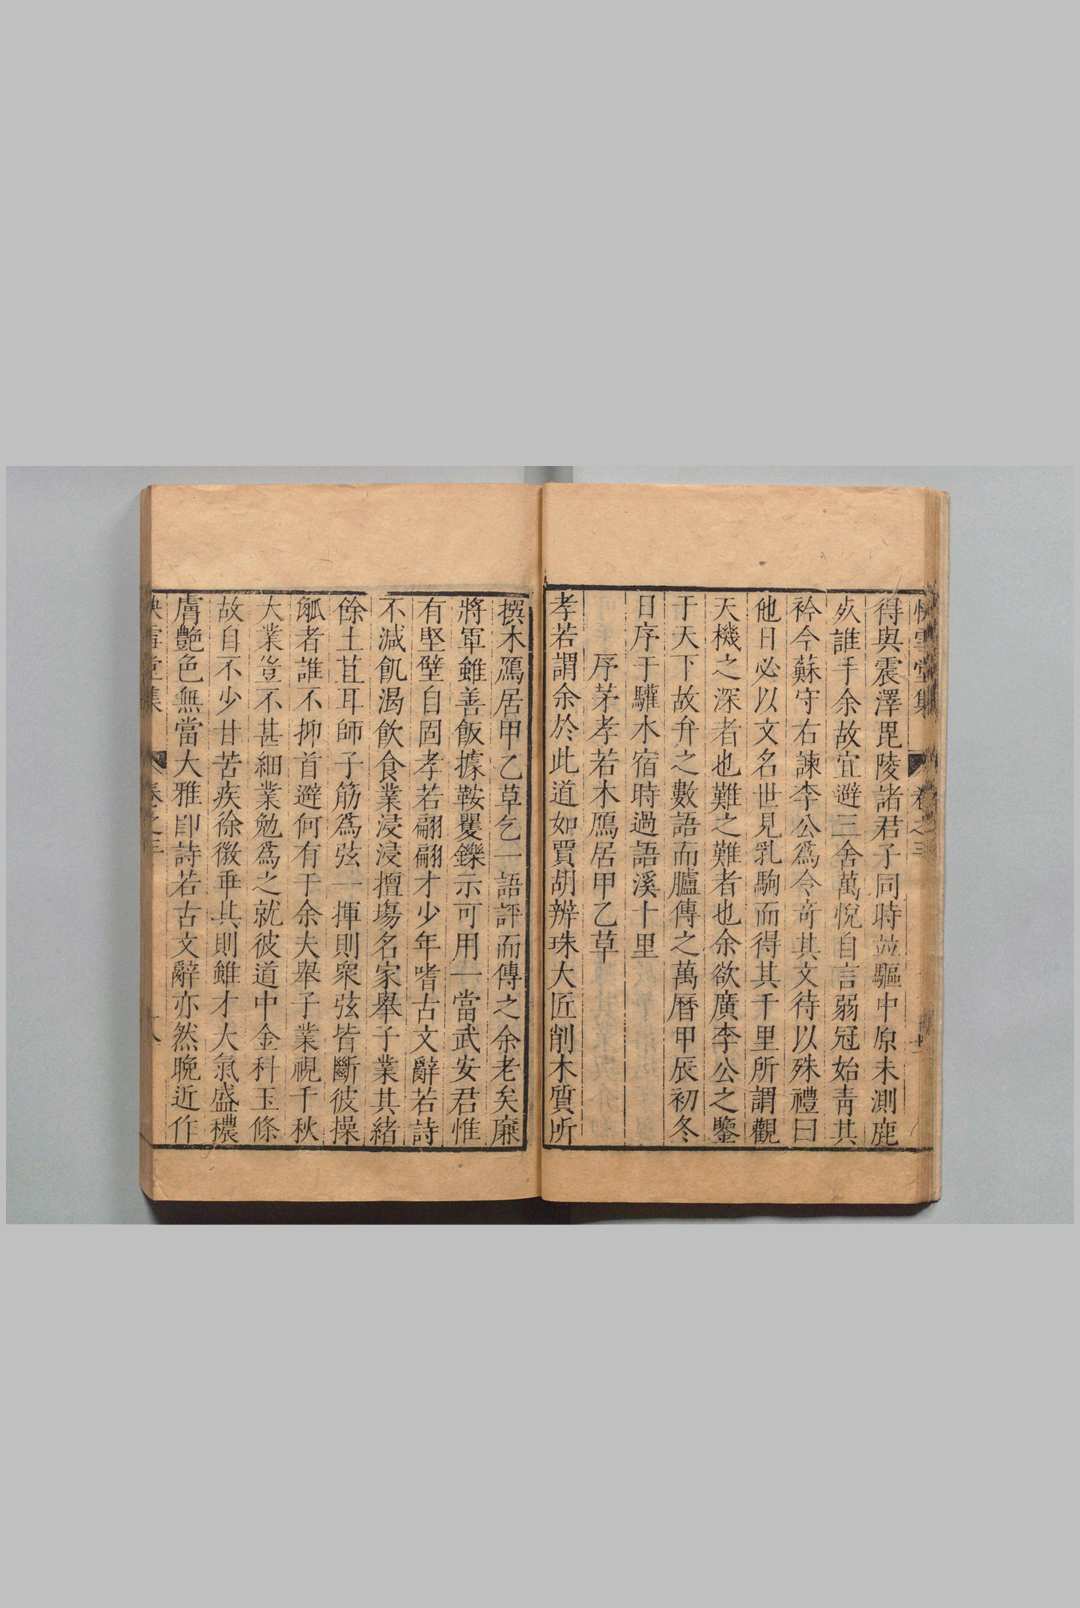 快雪堂集 卷之三
得與震澤毘陵諸君子同時並驅中原未測鹿
死誰手余故宜避三舍萬悅自言弱冠始青其
衿今蘇守右諫李公爲令奇其文待以殊禮曰
他日必以文名世見乳駒而得其千里所謂觀
天機之深者也難之難者也余欲廣李公之鑒
于天下故弁之數語而臚傳之萬曆甲辰初冬
日序于驩木宿時過語溪十里
序茅孝若木鴈居甲乙草
孝若謂余於此道如賈胡辨珠大匠削木質所
撰木鴈居甲乙草乞一語評而傳之余老矣廉
將軍雖善飯據鞍矍鑠示可用一當武安君惟
有堅壁自固孝若翩翩才少年嗜古文辭若詩
不減飢渴飲食業浸浸擅場名家舉子業其緒
餘土苴耳師子筋爲弦一揮則衆弦皆斷彼操
觚者誰不抑首避何有于余夫舉子業視千秋
大業豈不甚細業勉爲之就彼道中金科玉條
故自不少甘苦疾徐徵垂其則雖才大氣盛穠
膚艷色無當大雅卽詩若古文辭亦然晚近作
快雪堂集 卷之三 十八